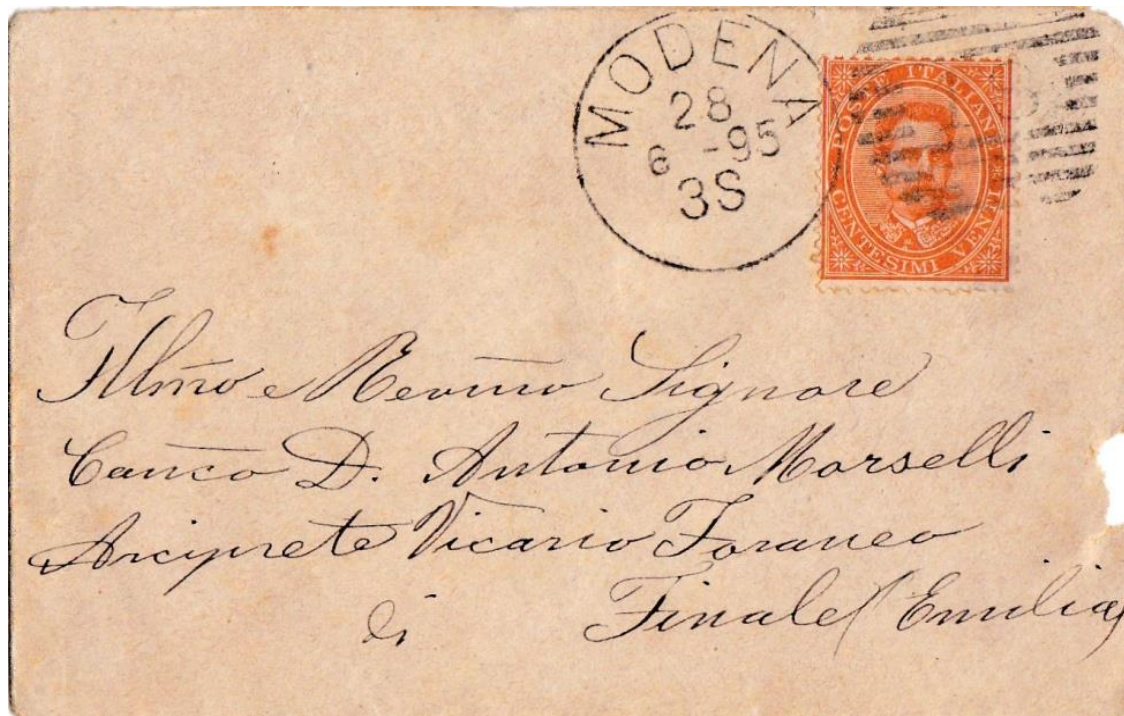 MODENA
28
6 -95
3S
POSTE ITALIANE
CENTESIMI VENTI
Illm̃o e Revm̃o Signore
Canc̃o D. Antonio Morselli
Arciprete Vicario Foraneo
di Finale (Emilia)